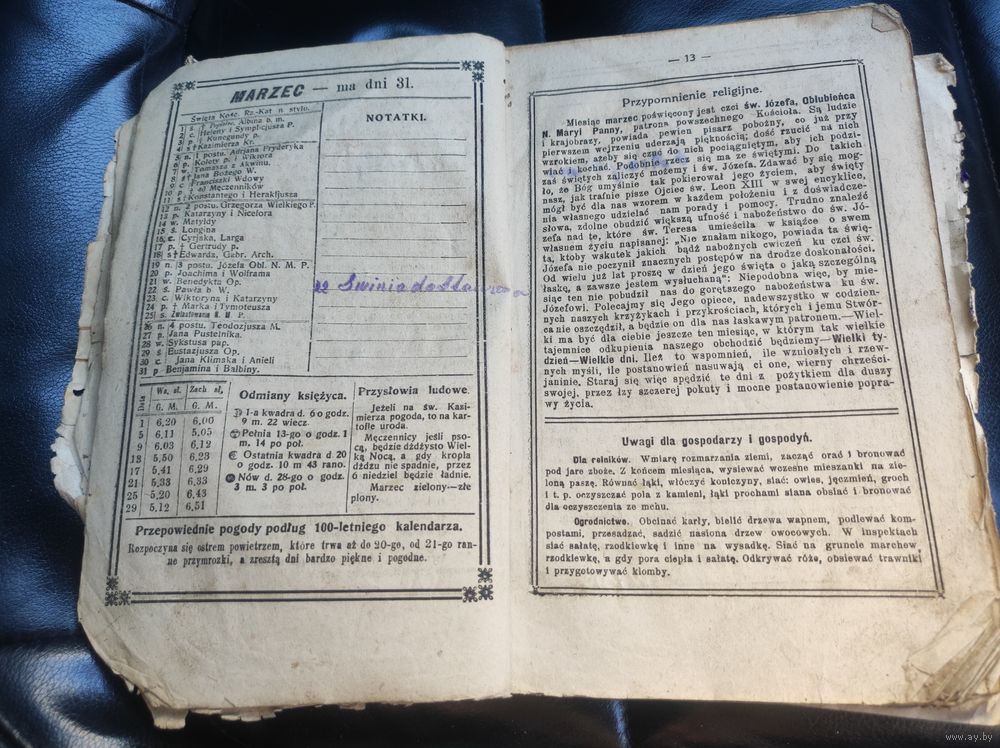 MARZEC — ma dni 31.
Święta Kośc. Rz.-Kat. n. stylo.
1 s. † Popielec. Albina b. m.
2 c. Heleny i Symplicjusza P.
3 p. † Kunegundy p.
4 s † Kazimierza Kr.
5 n. 1 postu. Adrjana Fryderyka
6 p. Kolety p. i Wiktora
7 w. Tomasza z Akwinu.
8 s † Jana Bożego W.
9 c Franciszki Wdowy
10 p † 40 Męczenników
11 s † Konstantego i Herakljusza
12 n. 2 postu. Grzegorza Wielkiego P.
13 p. Katarzyny i Nicefora
14 w. Matyldy
15 ś. Longina
16 c. Cyrjaka, Larga
17 p. † Gertrudy p.
18 s † Edwarda, Gebr. Arch.
19 n. 3 postu. Józefa Obl. N. M. P.
20 p. Joachima i Wolframa
21 w. Benedykta Op.
22 ś. Pawła b W.
23 c. Wiktoryna i Katarzyny
24 p. † Marka i Tymoteusza
25 s. Zwiastowania N. M. P.
26 n. 4 postu. Teodozjusza M.
27 p. Jana Pustelnika.
28 w. Sykstusa pap.
29 ś Eustazjusza Op.
30 c. Jana Klimaka i Anieli
31 p Benjamina i Balbiny.
NOTATKI.
22 Świnia dostała
Data Ws. sł. Zach sł.
G. M. G. M.
1 6,20 6,00
5 6,11 5,05
9 6,03 6,12
13 5,50 6,23
17 5,41 6,29
21 5,33 6,33
25 5,20 6,43
29 5,12 6,51
Odmiany księżyca.
I-a kwadra d. 6 o godz.
9 m. 22 wiecz.
Pełnia 13-go o godz. 1
m. 14 po poł.
Ostatnia kwadra d. 20
o godz. 10 m 43 rano.
Nów d. 28-go o godz.
3 m. 3 po poł.
Przysłowia ludowe.
Jeżeli na św. Kazi-
mierza pogoda, to na kar-
tofle uroda.
Męczennicy jeśli pso-
cą, będzie dżdżysto Wiel-
ką Nocą, a gdy kropla
dżdżu nie spadnie, przez
6 niedziel będzie ładnie.
Marzec zielony—złe
plony.
Przepowiednie pogody podług 100-letniego kalendarza.
Rozpoczyna się ostrem powietrzem, które trwa aż do 20-go, od 21-go ran-
ne przymrozki, a zresztą dni bardzo piękne i pogodne.
— 13 —
Przypomnienie religijne.
Miesiąc marzec poświęcony jest czci św. Józefa, Oblubieńca
N. Maryi Panny, patrona powszechnego Kościoła. Są ludzie
i krajobrazy, powiada pewien pisarz pobożny, co już przy
pierwszem wejrzeniu uderzają pięknością; dość rzucić na nich
wzrokiem, ażeby się czuć do nich pociągniętym, aby ich podzi-
wiać i kochać. Podobnie rzecz się ma ze świętymi. Do takich
zaś świętych zaliczyć możemy i św. Józefa. Zdawać by się mog-
ło, że Bóg umyślnie tak pokierował jego życiem, aby święty
nasz, jak trafnie pisze Ojciec św. Leon XIII w swej encyklice,
mógł być dla nas wzorem w każdem położeniu i z doświadcze-
nia własnego udzielać nam porady i pomocy. Trudno znaleźć
słowa, zdolne obudzić większą ufność i nabożeństwo do św. Jó-
zefa nad te, które św. Teresa umieściła w książce o swem
własnem życiu napisanej: „Nie znałam nikogo, powiada ta świę-
ta, ktoby wskutek jakich bądź nabożnych ćwiczeń ku czci św.
Józefa nie poczynił znacznych postępów na drodze doskonałości.
Od wielu już lat proszę w dzień jego święta o jaką szczególną
łaskę, a zawsze jestem wysłuchaną": Niepodobna więc, by mie-
siąc ten nie pobudził nas do gorętszego nabożeństwa ku św.
Józefowi. Polecajmy się Jego opiece, nadewszystko w codzien-
nych naszych krzyżykach i przykrościach, których i jemu Stwór-
ca nie oszczędził, a będzie on dla nas łaskawym patronem.—Wiel-
ki ma być dla ciebie jeszcze ten miesiąc, w którym tak wielkie
tajemnice odkupienia naszego obchodzić będziemy—Wielki ty-
dzień—Wielkie dni. Ileż to wspomnień, ile wzniosłych i rzew-
nych myśli, ile postanowień nasuwają ci one, wierny chrześci-
janinie. Staraj się więc spędzić te dni z pożytkiem dla duszy
swojej, przez łzy szczerej pokuty i mocne postanowienie popra-
wy życia.
Uwagi dla gospodarzy i gospodyń.
Dla rolników. Wmiarę rozmarzania ziemi, zacząć orać i bronować
pod jare zboże. Z końcem miesiąca, wysiewać wczesne mieszanki na zie-
loną paszę. Równać łąki, włóczyć koniczyny, siać: owies, jęczmień, groch
i t. p. oczyszczać pola z kamieni, łąki prochami siana obsiać i bronować
dla oczyszczenia ze mchu.
Ogrodnictwo. Obcinać karły, bielić drzewa wapnem, podlewać kom-
postami, przesadzać, sadzić nasiona drzew owocowych. W inspektach
siać sałatę, rzodkiewkę i inne na wysadkę. Siać na gruncie marchew,
rzodkiewkę, a gdy pora ciepła i sałatę. Odkrywać róże, obsiewać trawniki
i przygotowywać klomby.
www.ay.by